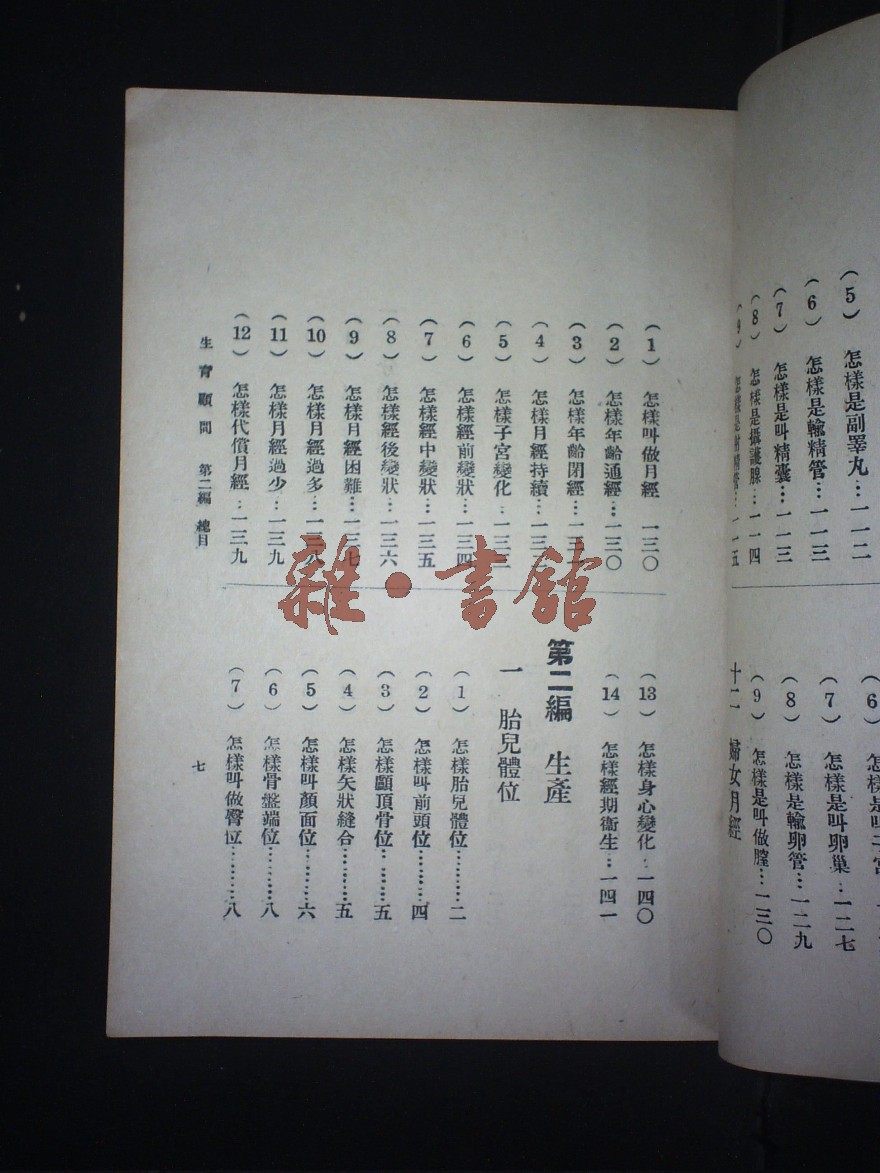 (5) 怎樣是副睪丸…一一二
(6) 怎樣是輸精管…一一三
(7) 怎樣是叫精囊…一一三
(8) 怎樣是攝護腺…一一四
(9) 怎樣是射精管…一一五
(6) 怎樣是叫子宮
(7) 怎樣是叫卵巢…一二七
(8) 怎樣是輸卵管…一二九
(9) 怎樣是叫做膣…一三〇
十二 婦女月經
(1) 怎樣叫做月經 一三〇
(2) 怎樣年齡通經…一三〇
(3) 怎樣年齡閉經…一三
(4) 怎樣月經持續…一三
(5) 怎樣子宮變化…一三
(6) 怎樣經前變狀…一三四
(7) 怎樣經中變狀…一三五
(8) 怎樣經後變狀…一三六
(9) 怎樣月經困難…一三七
(10) 怎樣月經過多…一三八
(11) 怎樣月經過少…一三九
(12) 怎樣代償月經…一三九
(13) 怎樣身心變化…一四〇
(14) 怎樣經期衞生…一四一
第二編 生產
一 胎兒體位
(1) 怎樣胎兒體位………二
(2) 怎樣叫前頭位………四
(3) 怎樣顱頂骨位………五
(4) 怎樣矢狀縫合………五
(5) 怎樣叫顏面位………六
(6) 怎樣骨盤端位………八
(7) 怎樣叫做臀位………八
生育顧問 第二編 總目
七
雜·書館